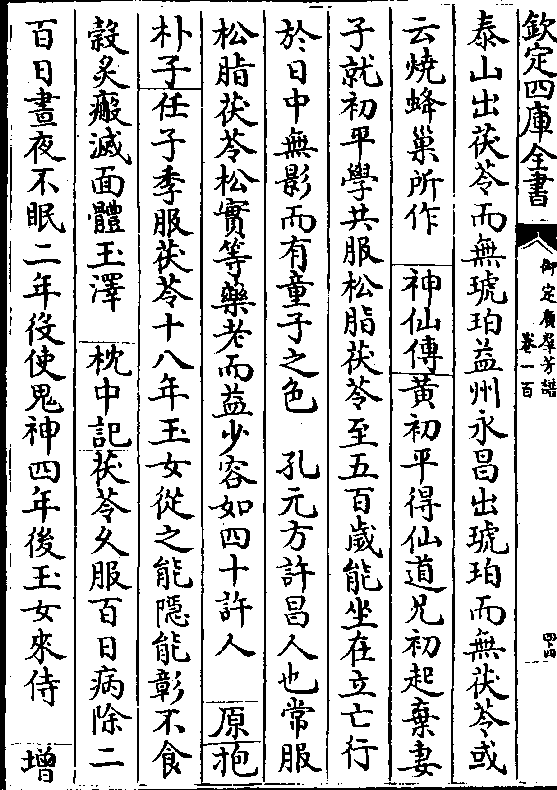 欽定四庫全書
御定廣羣芳譜
卷一百
四十四
泰山出茯苓而無琥珀益州永昌出琥珀而無茯苓或
云燒蜂巢所作 神仙傳黄初平得仙道兄初起棄妻
子就初平學共服松脂茯苓至五百歲能坐在立亡行
於日中無影而有童子之色 孔元方許昌人也常服
松脂茯苓松實等藥老而益少容如四十許人 原抱
朴子任子季服茯苓十八年玉女從之能隱能彰不食
穀炙瘢滅面體玉澤 枕中記茯苓久服百日病除二
百日晝夜不眠二年役使鬼神四年後玉女來侍 增